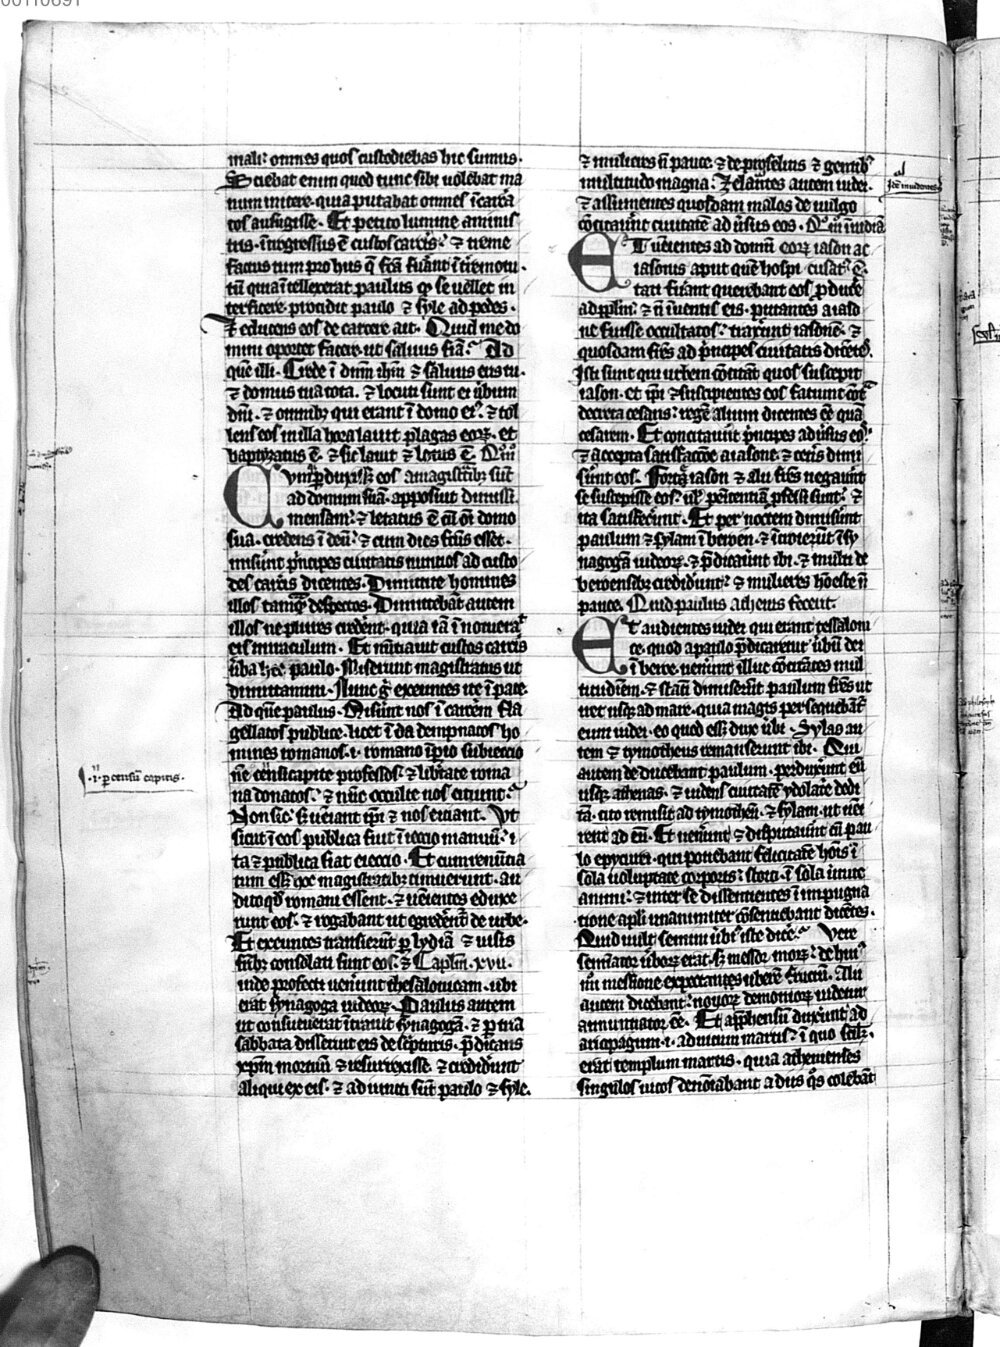 mali? omnes quos custodiebas hic sumus.
Sciebat enim quod tunc sibi uolebat ma
num mitere. quia putabat omnes ī carcā
tos aufugisse. Et petito lumine aminis
tris. īngressus ē custos carcīs? ⁊ treme
factus tum pro hiis q̄ fc̄a fuānt ī tremotu.
tū quia ītellexerat paulus ꝙ se uellet in
terficere. procidit paulo ⁊ syle ad pedes.
Et educens eos de carcere ait. Quid me do
mini oportet facere. ut saluus fiā? Ad
quē illi. Crede ī dn̄m ihm̄ ⁊ saluus eris tu.
⁊ domus tua tota. ⁊ locuti sunt ei ūbum
dn̄i. ⁊ omnibꝫ qui erant ī domo eiꝰ. ⁊ tol
lens eos in illa hora lauit plagas eoꝝ. et
baptizatus ē. ⁊ sic lauit ⁊ lotus ē.
Cumqꝫ ꝑduxissꝫ eos
ad domum suā. apposuit
mensam? ⁊ letatus ē cū oī domo
sua. credens ī deū? ⁊ cum dies factus esset.
misūnt pͥncipes ciuitatis nuncios ad custo
des carcīs dicentes. Dimittite homines
illos tamqͣꝫ despectos. Dimittebāt autem
illos ne plures crederent. quia iā ī notuerat
eis miraculum. Et nūtiauit custos carcīs
ūba hec paulo. Miserunt magistratus ut
dimittamini. Nunc g̊ exeuntes ite ī pace.
Ad quē paulus. Misūnt nos ī carcēm fla
gellatos publice. licet ī da dempnatos ho
mines romanos. i. romano īperio subiectio
ne censi capite professos? ⁊ libtate roma
na donatos? ⁊ nūc occulte nos eiciunt?
Non sic. sꝫ ueniant ipi ⁊ nos eiciant. Ut
sicut ī eos publica fuit ī iectio manuū? i
ta ⁊ publica fiat eiectio. Et cum renūcia
tum essꝫ hoc magistratibꝫ timuerunt. au
dito qd̄ romani essent. ⁊ uenientes eduxe
runt eos. ⁊ rogabant ut egredentur de urbe.
Et exeuntes transierūt ꝑ lydiā ⁊ uisis
fribꝫ consolati sunt eos. Caplm̄. xvii.
inde profecti uenūnt thesalonicam. ubi
erāt synagoga iudeoꝝ. Paulus autem
ut consueuerat ītrauit synagogā. ⁊ ꝑ tria
sabbata disseruit eis de scͥpturis. p̄dicans
xp̄m mortuū ⁊ resurrexisse. ⁊ crediderunt
aliqui ex eis. ⁊ ad iuncti sūt paulo ⁊ syle.
·i· ꝑ censū capitis.
⁊ mulieres nō pauce. ⁊ de proselitis ⁊ gentibꝰ
multitudo magna? Zelantes autem iudei.
⁊ assumentes quosdam malos de uulgo
cōcitarūnt ciuitatē ad ūsus eos.
Et uenientes ad domū eoꝝ iason ac
iasonis aput quē hospi
tati fuānt querebant eos ꝓducē
ad pplm̄? ⁊ nō ī uentis eis. putantes a iaso
ne fuisse occultatos? traxerunt iasonē. ⁊
quosdam frēs ad pͥncipes ciuitatis dicētes.
Isti sunt qui urbem cōcitāt quos suscepit
iason. et ipi ⁊ suscipientes eos faciunt cōtͣ
decreta cesaris? regē alium dicentes eē quā
cesarem. Et concitauūt pͥncipes ad ūsus eos?
⁊ accepta satisfactōne a iasone. ⁊ ceteris dimi
sūnt eos. Forte iason ⁊ alii frēs negauūt
se suscepisse eos? uel penitentiā professi sunt? ⁊
ita satisfecerūt. Et per noctem dimisūnt
paulum ⁊ sylam ī beroen. ⁊ ītroierūt ī sy
nagogā iudeoꝝ. ⁊ p̄dicarūnt ibi. ⁊ multi de
beroensibꝫ crediderunt? ⁊ mulieres honeste nō
pauce. Quid paulus athenis fecerit.
Et audientes iudei qui erant tessaloni
ce. quod a paulo p̄dicaretur ūbū dei
ī beroe. uenerūnt illuc cōcitātes mul
titudinem. ⁊ statī dimiserūt paulum frēs ut
iret usqꝫ ad mare. quia magis persequebātur
eum iudei. eo quod essꝫ dux ūbi. Sylas au
tem ⁊ tymotheus remanserunt ibi. Qui
autem deducebant paulum. perduxerunt eū
usqꝫ athenas. ⁊ uidens ciuitatē ydolatrie dedi
tā. cito remisit ad tymotheū. ⁊ sylam. ut ueni
rent ad eū. Et uenerūnt ⁊ disputauūt cū pau
lo epycurei. qui ponebant felicitatē hois ī
sola uoluptate corporis? stoici. ī sola uirtute
animi? ⁊ inter se dissentientes ī impugna
tione apli unanimiter cōsentiebant dicētes.
Quid uult seminiūbiꝰ iste dicē? Vere
seminator ūboꝝ erat. sꝫ messor moꝝ? de huiꝰ
mī messione expectantes uberē fructū. Alii
autem dicebant? nouoꝝ demonioꝝ uidetur
annuntiator eē. Et app̄hensū duxerunt ad
ariopagum. i. ad uicum martis? ī quo scilicet
erat templum martis. quia athenienses
singulos uicos denōiabant a diis q̊s colebāt